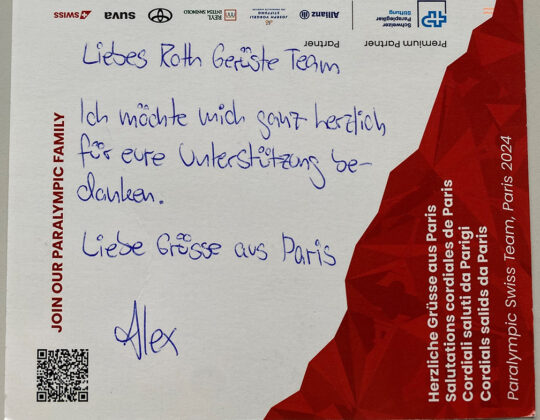 SWISS
suva
REYL
INTESA SANPAOLO
JOSEPH VOEGELI
STIFTUNG
Allianz
Schweizer
Paraplegiker
Stiftung
Partner
Premium Partner
Liebes Roth Gerüste Team
Ich möchte mich ganz herzlich
für eure Unterstützung be-
danken.
Liebe Grüsse aus Paris
Alex
JOIN OUR PARALYMPIC FAMILY
Herzliche Grüsse aus Paris
Salutations cordiales de Paris
Cordiali saluti da Parigi
Cordials salids da Paris
Paralympic Swiss Team, Paris 2024